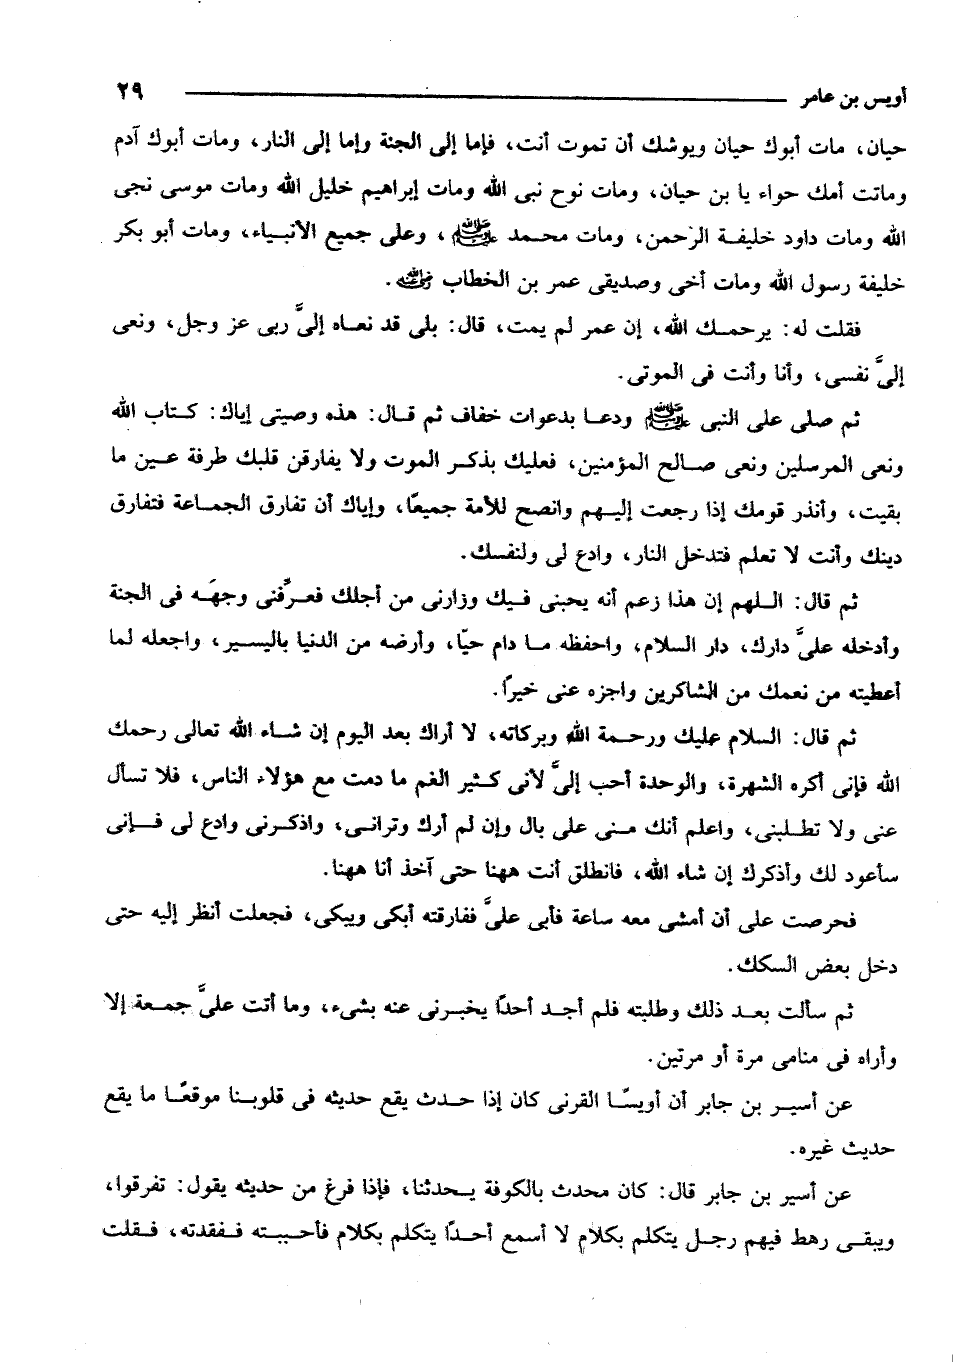 أويس بن عامر ٢٩
حيان، مات أبوك حيان ويوشك أن تموت أنت، فإما إلى الجنة وإما إلى النار، ومات أبوك آدم
وماتت أمك حواء يا بن حيان، ومات نوح نبى الله ومات إبراهيم خليل الله ومات موسى نجى
الله ومات داود خليفة الرحمن، ومات محمد ﷺ، وعلى جميع الأنبياء، ومات أبو بكر
خليفة رسول الله ومات أخى وصديقى عمر بن الخطاب رضي الله عنه.
فقلت له: يرحمك الله، إن عمر لم يمت، قال: بلى قد نعاه إلىَّ ربى عز وجل، ونعى
إلىَّ نفسى، وأنا وأنت فى الموتى.
ثم صلى على النبى ﷺ ودعا بدعوات خفاف ثم قال: هذه وصيتى إياك: كتاب الله
ونعى المرسلين ونعى صالح المؤمنين، فعليك بذكر الموت ولا يفارقن قلبك طرفة عين ما
بقيت، وأنذر قومك إذا رجعت إليهم وانصح للأمة جميعًا، وإياك أن تفارق الجماعة فتفارق
دينك وأنت لا تعلم فتدخل النار، وادع لى ولنفسك.
ثم قال: اللهم إن هذا زعم أنه يحبنى فيك وزارنى من أجلك فعرِّفنى وجهَه فى الجنة
وأدخله علىَّ دارك، دار السلام، واحفظه ما دام حيّا، وأرضه من الدنيا باليسير، واجعله لما
أعطيته من نعمك من الشاكرين واجزه عنى خيرًا.
ثم قال: السلام عليك ورحمة الله وبركاته، لا أراك بعد اليوم إن شاء الله تعالى رحمك
الله فإنى أكره الشهرة، والوحدة أحب إلىَّ لأنى كثير الغم ما دمت مع هؤلاء الناس، فلا تسأل
عنى ولا تطلبنى، واعلم أنك منى على بال وإن لم أرك وترانى، واذكرنى وادع لى فإنى
سأعود لك وأذكرك إن شاء الله، فانطلق أنت ههنا حتى آخذ أنا ههنا.
فحرصت على أن أمشى معه ساعة فأبى علىَّ ففارقته أبكى ويبكى، فجعلت أنظر إليه حتى
دخل بعض السكك.
ثم سألت بعد ذلك وطلبته فلم أجد أحدًا يخبرنى عنه بشىء، وما أتت علىَّ جمعة إلا
وأراه فى منامى مرة أو مرتين.
عن أسير بن جابر أن أويسًا القرنى كان إذا حدث يقع حديثه فى قلوبنا موقعًا ما يقع
حديث غيره.
عن أسير بن جابر قال: كان محدث بالكوفة يحدثنا، فإذا فرغ من حديثه يقول: تفرقوا،
ويبقى رهط فيهم رجل يتكلم بكلام لا أسمع أحدًا يتكلم بكلام فأحببته ففقدته، فقلت